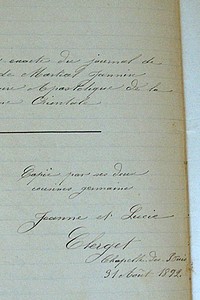 exacte du journal de
de Martial Jannin
Apostolique de la
Orientale
Copié par ses deux
cousines germaines
Jeanne et Lucie
Clerget
Chapelle des Bois
31 Août 1892